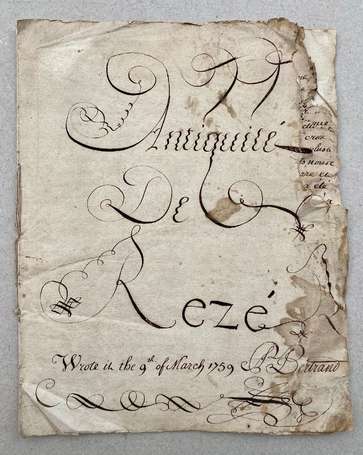 Antiquité
De
Rezé
Wrote it the 9th of March 1759 P. Bertrand